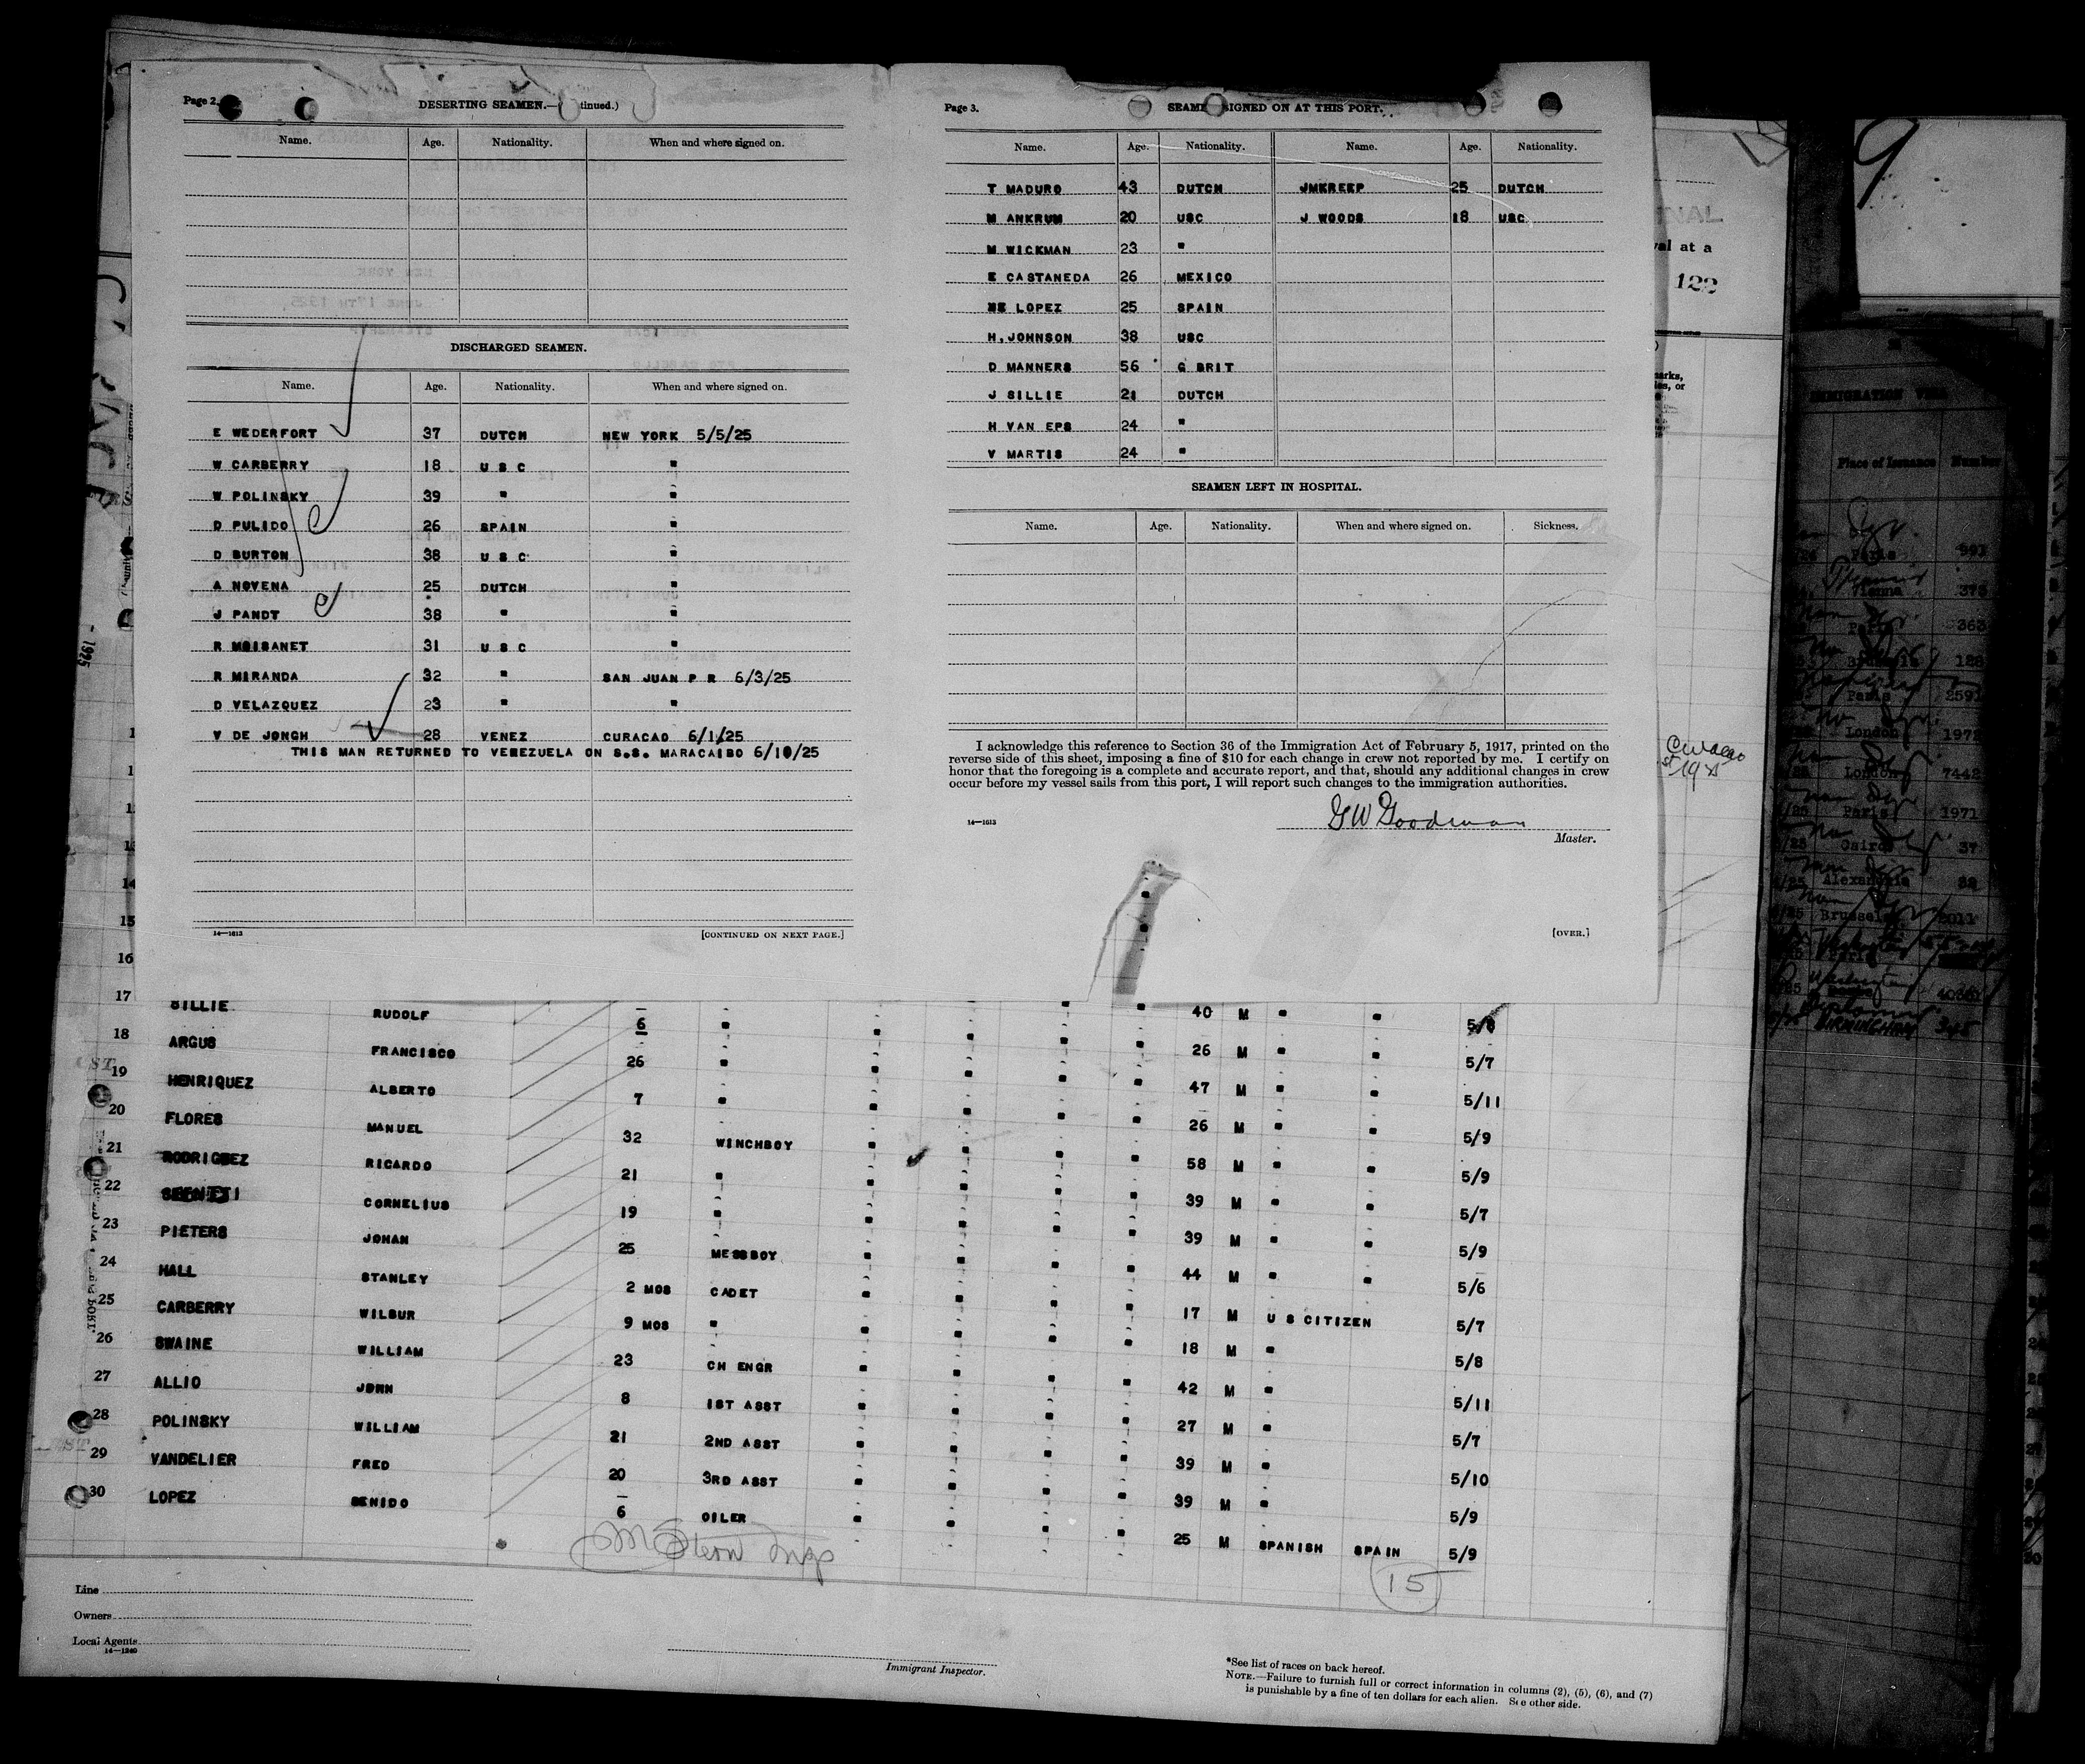 Page 2.
DESERTING SEAMEN.—( tinued.)
Name. Age. Nationality. When and where signed on.
DISCHARGED SEAMEN.
Name. Age. Nationality. When and where signed on.
E WEDERFORT 37 DUTCH NEW YORK 5/5/25
W CARBERRY 18 U S C "
W POLINSKY 39 " "
D PULIDO 26 SPAIN "
D BURTON 38 U S C "
A NOVENA 25 DUTCH "
J PANDT 38 " "
R MOISANET 31 U S C "
R MIRANDA 32 " SAN JUAN P R 6/3/25
D VELAZQUEZ 23 " "
V DE JONGH 28 VENEZ CURACAO 6/1/25
THIS MAN RETURNED TO VENEZUELA ON S.S. MARACAIBO 6/10/25
14—1613 [CONTINUED ON NEXT PAGE.]
Page 3.
SEAME SIGNED ON AT THIS PORT.
Name. Age. Nationality. Name. Age. Nationality.
T MADURO 43 DUTCH JMKREEP 25 DUTCH
M ANKRUM 20 USC J WOODS 18 USC
M WICKMAN 23 "
E CASTANEDA 26 MEXICO
LOPEZ 25 SPAIN
H. JOHNSON 38 USC
D MANNERS 56 G BRIT
J SILLIE 21 DUTCH
H VAN EPS 24 "
V MARTIS 24 "
SEAMEN LEFT IN HOSPITAL.
Name. Age. Nationality. When and where signed on. Sickness.
I acknowledge this reference to Section 36 of the Immigration Act of February 5, 1917, printed on the
reverse side of this sheet, imposing a fine of $10 for each change in crew not reported by me. I certify on
honor that the foregoing is a complete and accurate report, and that, should any additional changes in crew
occur before my vessel sails from this port, I will report such changes to the immigration authorities.
14—1613
G W Goodman
Master.
[OVER.]
17 SILLIE RUDOLF 6 " 40 M " " 5/8
18 ARGUS FRANCISCO 26 " 26 M " " 5/7
19 HENRIQUEZ ALBERTO 7 " 47 M " " 5/11
20 FLORES MANUEL 32 WINCHBOY 26 M " " 5/9
21 RODRIGUEZ RICARDO 21 " 58 M " " 5/9
22 CORNELIUS 19 " 39 M " " 5/7
23 PIETERS JOHAN 25 MESSBOY 39 M " " 5/9
24 HALL STANLEY 2 MOS CADET 44 M " " 5/6
25 CARBERRY WILBUR 9 MOS " 17 M U S CITIZEN 5/7
26 SWAINE WILLIAM 23 CH ENGR 18 M " 5/8
27 ALLIO JOHN 8 1ST ASST 42 M " 5/11
28 POLINSKY WILLIAM 21 2ND ASST 27 M " 5/7
29 VANDELIER FRED 20 3RD ASST 39 M " 5/10
30 LOPEZ BENIDO 6 OILER 39 M " 5/9
25 M SPANISH SPAIN 5/9
15
Line
Owners
Local Agents
14—1240
Immigrant Inspector.
*See list of races on back hereof.
NOTE.—Failure to furnish full or correct information in columns (2), (5), (6), and (7)
is punishable by a fine of ten dollars for each alien. See other side.
val at a
122
Curacao
9
Place of Issuance Number
Paris 991
Vienna
London
London 7442
Paris 1971
Cairo 37
Alexandria
Brussels 2011
BIRMINGHAM 345